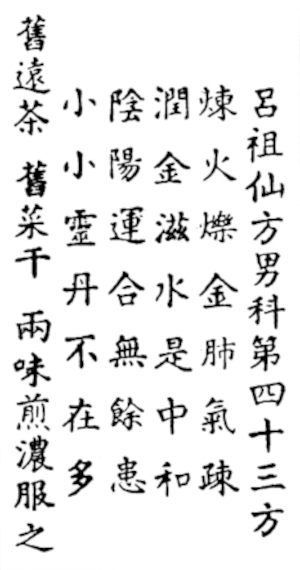 呂祖仙方男科第四十三方
煉火爍金肺氣疎
潤金滋水是中和
陰陽運合無餘患
小小靈丹不在多
舊遠茶 舊菜干 兩味煎濃服之